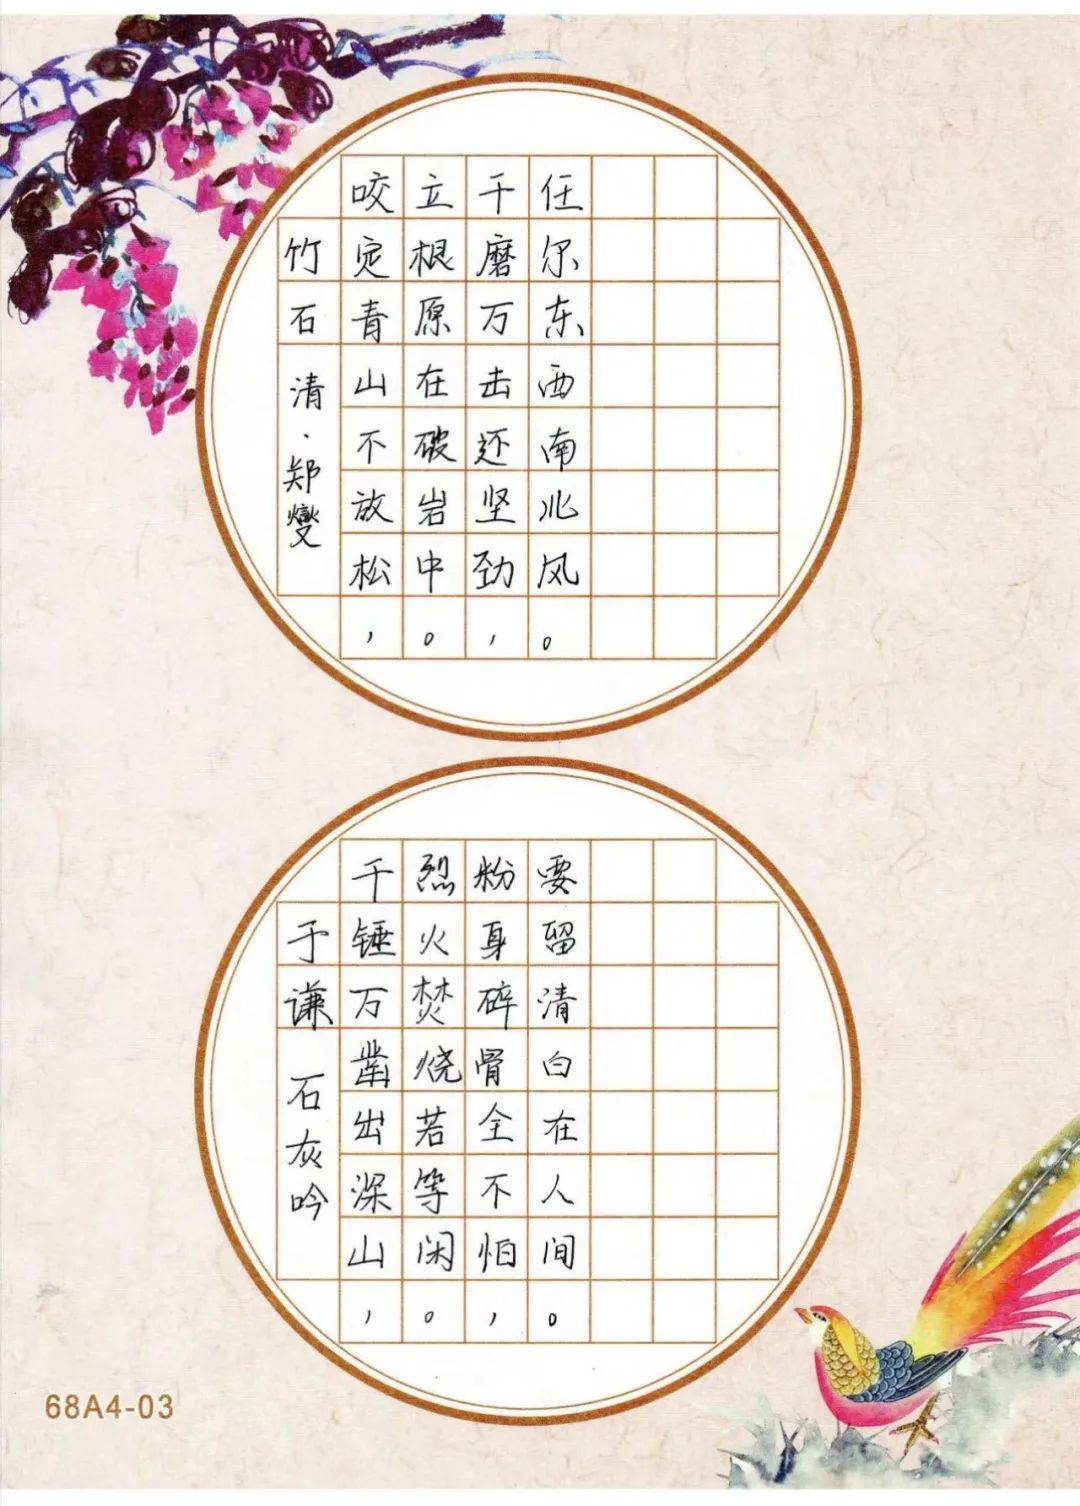 竹石
清·郑燮
咬定青山不放松，
立根原在破岩中。
千磨万击还坚劲，
任尔东西南北风。
于谦
石灰吟
千锤万凿出深山，
烈火焚烧若等闲。
粉身碎骨全不怕，
要留清白在人间。
68A4-03